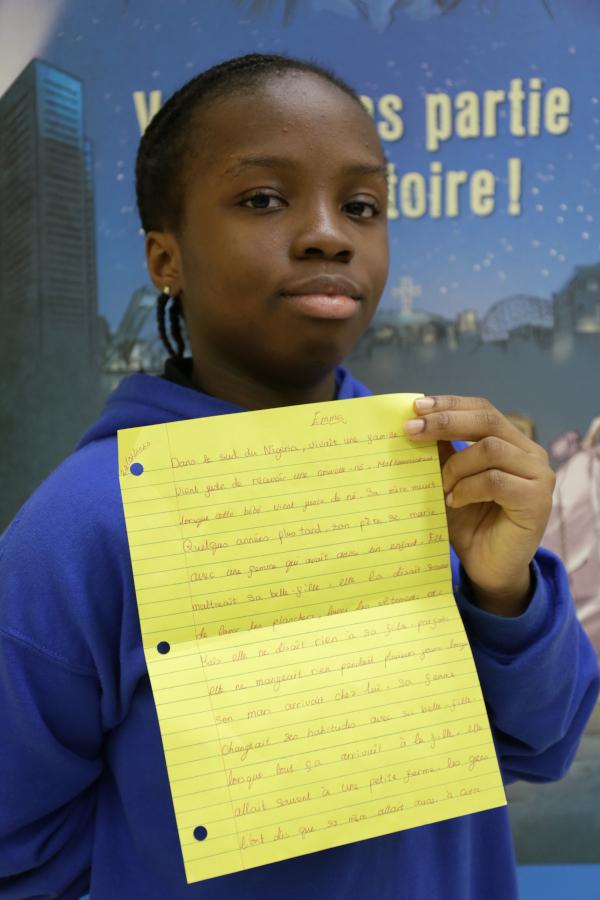 partie
toire !
Emma
Dans le sud du Nigeria, vivait une famille
vient juste de recevoir une nouvelle-né. Malheureusement
lorsque cette bébé vient juste de né. Sa mère meurt
Quelques années plus tard, son père se marie
avec une femme qui avait aussi un enfant. Elle
maltraitait sa belle-fille. elle la disait
de laver les planchers, laver les vêtements, etc
Mais elle ne disait rien à sa fille. parfois
elle ne mangeait rien pendant plusieurs jours
son mari arrivait chez lui. Sa femme
changeait ses habitudes avec sa belle-fille
lorsque tout ça arrivait à la fille. elle
allait souvent à une petite ferme. les gens
l'ont dis que sa mère allait aussi à cette